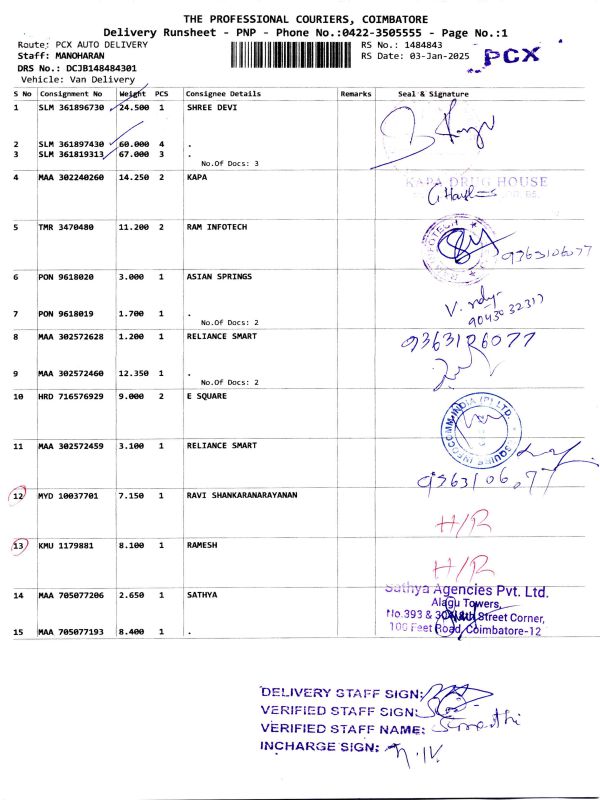 THE PROFESSIONAL COURIERS, COIMBATORE
Delivery Runsheet - PNP - Phone No.:0422-3505555 - Page No.:1
Route: PCX AUTO DELIVERY RS No.: 1484843
Staff: MANOHARAN RS Date: 03-Jan-2025 PCX
DRS No.: DCJB148484301
Vehicle: Van Delivery
S No Consignment No Weight PCS Consignee Details Remarks Seal & Signature
1 SLM 361896730 24.500 1 SHREE DEVI
2 SLM 361897430 60.000 4 .
3 SLM 361819313 67.000 3 .
No.Of Docs: 3
4 MAA 302240260 14.250 2 KAPA KAPA DRUG HOUSE
5 TMR 3470480 11.200 2 RAM INFOTECH
9363106077
6 PON 9618020 3.000 1 ASIAN SPRINGS
7 PON 9618019 1.700 1 .
No.Of Docs: 2
8 MAA 302572628 1.200 1 RELIANCE SMART 9363106077
9 MAA 302572460 12.350 1 .
No.Of Docs: 2
10 HRD 716576929 9.000 2 E SQUARE
11 MAA 302572459 3.100 1 RELIANCE SMART
9363106077
12 MYD 10037701 7.150 1 RAVI SHANKARANARAYANAN
H/R
13 KMU 1179881 8.100 1 RAMESH
H/R
14 MAA 705077206 2.650 1 SATHYA Sathya Agencies Pvt. Ltd.
Alagu Towers,
Street Corner,
15 MAA 705077193 8.400 1 . 100 Feet Road, Coimbatore-12
DELIVERY STAFF SIGN:
VERIFIED STAFF SIGN:
VERIFIED STAFF NAME:
INCHARGE SIGN: